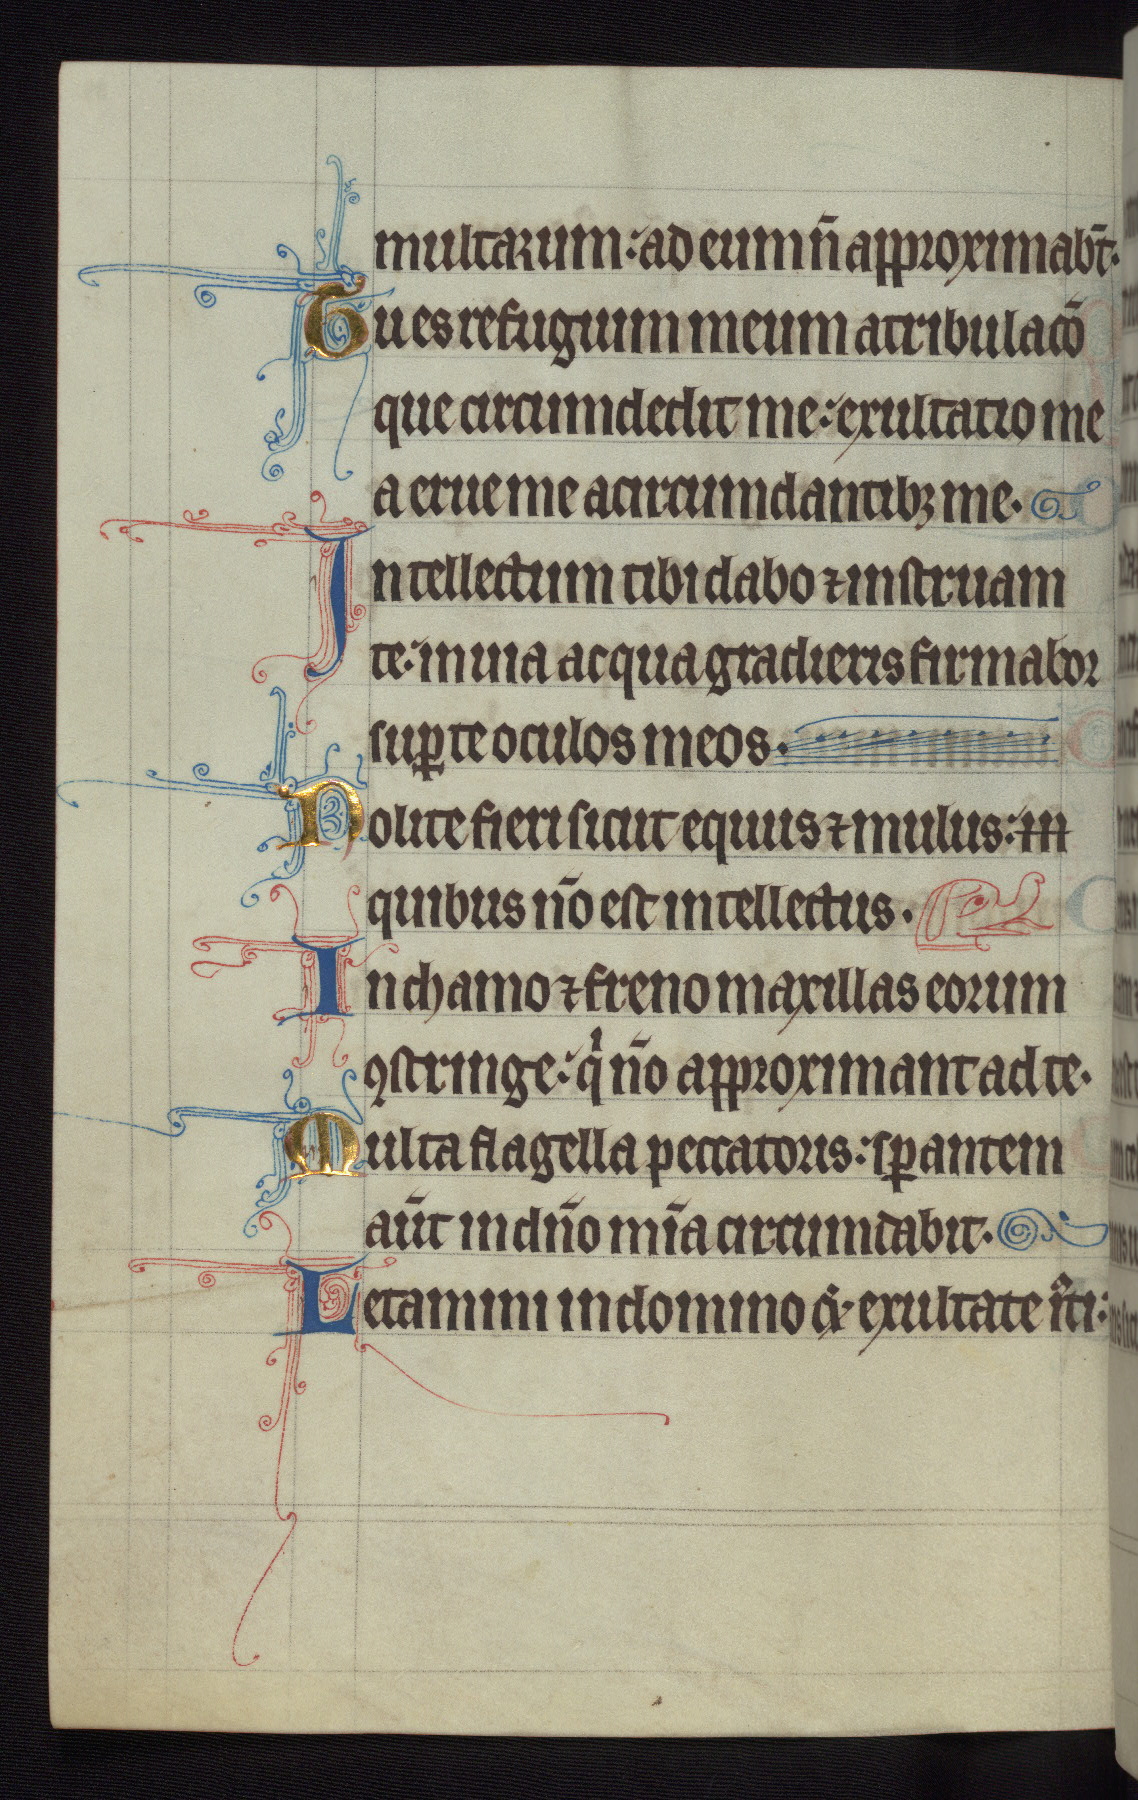 multarum: ad eum n̄ approximab̄t.
Tu es refugium meum a tribulacō
que circumdedit me: exultatio me
a erue me a circumdantibꝫ me.
Intellectum tibi dabo ⁊ instruam
te: in uia ac qua gradieris firmabor
suꝑ te oculos meos.
Nolite fieri sicut equus ⁊ mulus: in
quibus nō est intellectus.
In chamo ⁊ freno maxillas eorum
ꝯstringe: qͥ nō approximant ad te.
Multa flagella peccatoris: sꝑantem
aūt in dn̄o mīa circumdabit.
Letamini in domino & exultate ı̄ti: